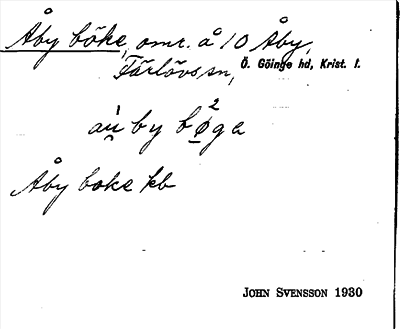 Åby böke, omr. å 10 Åby,
Färlövs sn, Ö. Göinge hd, Krist. l.
aù̯ by bø̱²ga
Åby boke kb
JOHN SVENSSON 1930